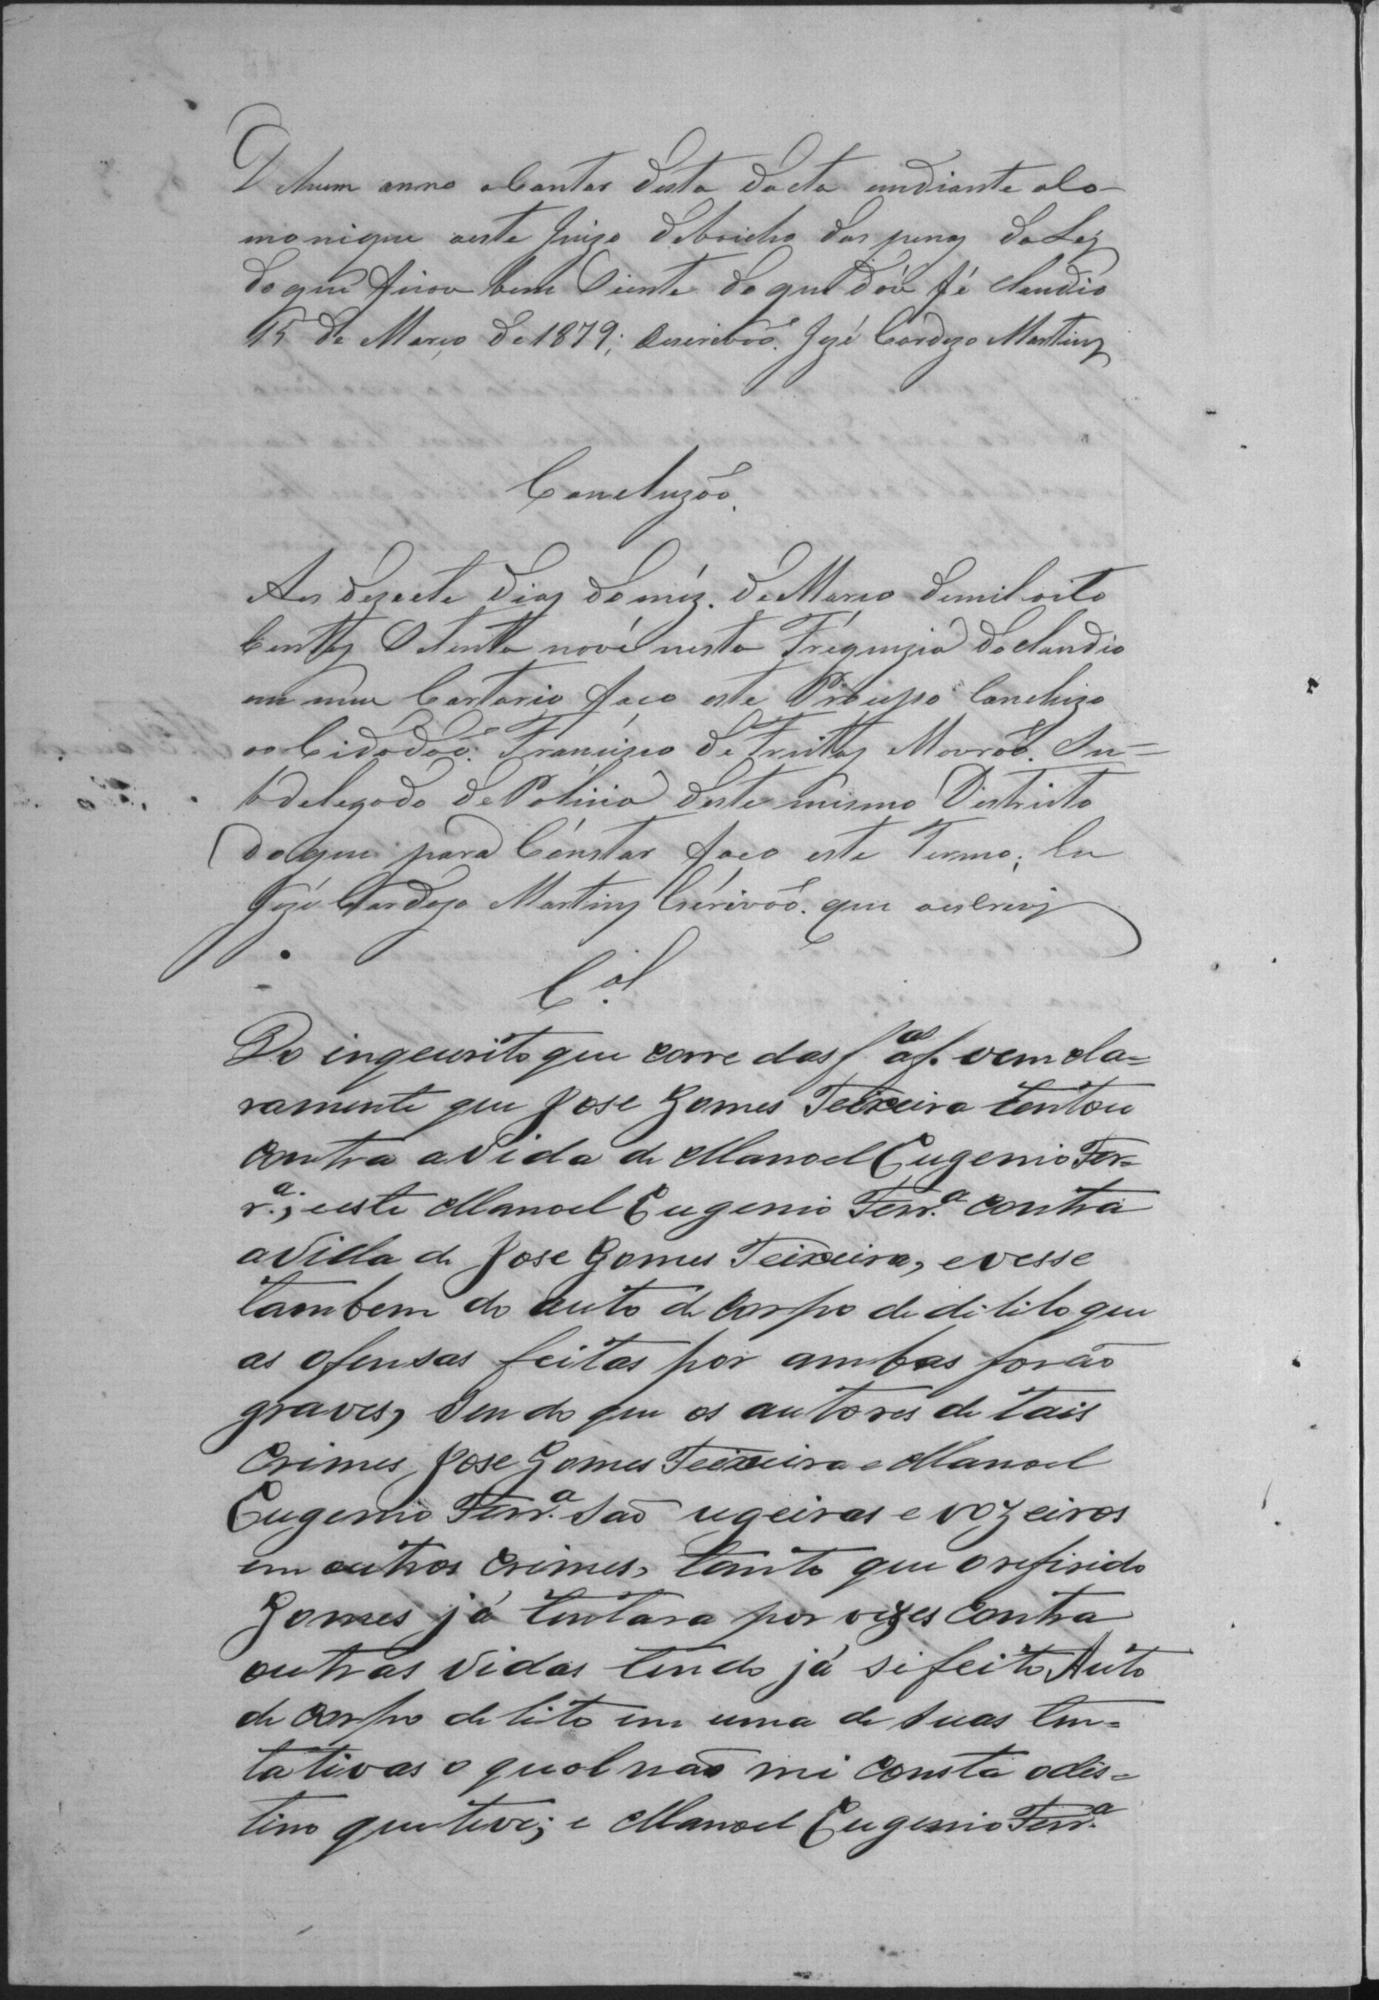 De hum anno a Contar desta dacta em diante a Co-
monique aeste Juizo debaicho das penas da Lej
do que ficou bem Siente do que dou fé Claudio
15 de Março de 1879; oescrivaõ. Jozé Cardozo Martins
Concluzaõ.
Aos dezaete dias do méz. de Marco de mil oito
Centos Setenta nové nesta Fréguezia do Claudio
em meu Cartario faco este Procésso Concluzo
ao Cidadaõ. Francisco de Freittas Mouraõ. Su-
bdelegado de Policia deste mesmo Districto
do que para Cónstar faco este Termo; Eu
Jozé Cardozo Martins Escrivaõ. que oescrevj
C.ol
Do inqeurito que corre das f.as af. vem cla=
ramente que Jose Gomes Teixeira tentou
contra a vida de Manoel Eugenio Fer=
r.a; eeste Manoel Eugenio Ferr.a contra
a vida de Jose Gomes Teixeira, e vesse
tambem do auto de corpo de dilito que
as ofensas feitas por ambas forão
graves, Sendo que os autores de tais
crimes, Jose Gomes Teixeira e Manoel
Eugenio Ferr.a São ugeiras e vozeiros
em outros crimes, tanto que o refirido
Gomes já tentara por vezes contra
outras vidas tendo já si feito Auto
de corpo de lito em uma de suas ten=
tativas o qual naõ mi consta o des=
tino que teve; e Manoel Eugenio Ferr.a